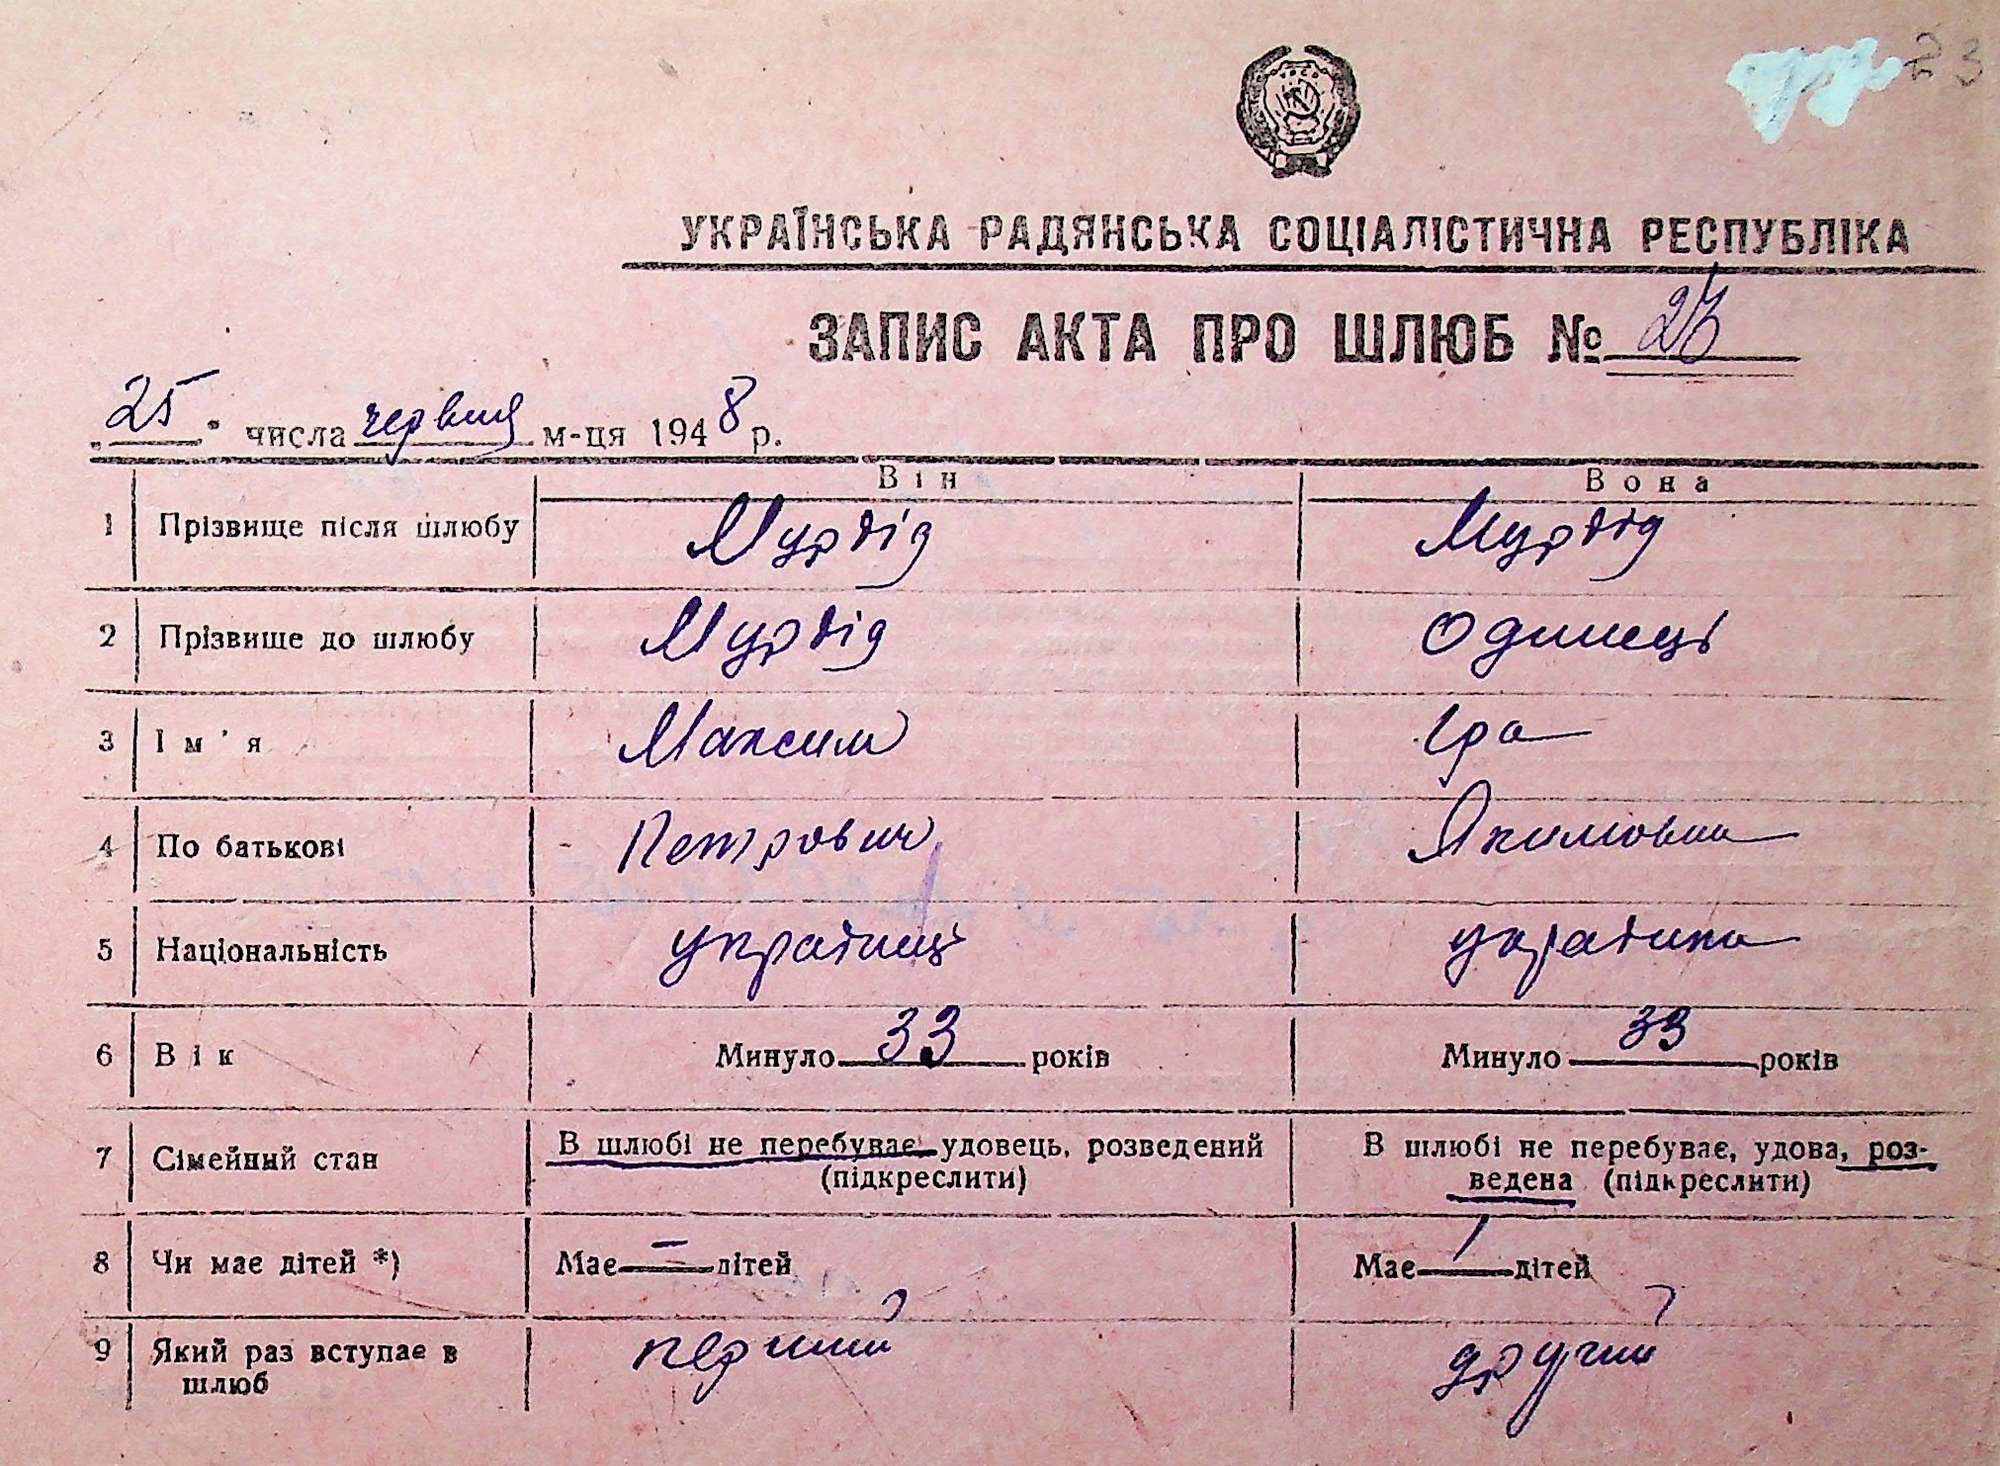 23
УКРАЇНСЬКА РАДЯНСЬКА СОЦІАЛІСТИЧНА РЕСПУБЛІКА
ЗАПИС АКТА ПРО ШЛЮБ №
"25" числа червня м-ця 1948 р.
Він Вона
1 Прізвище після шлюбу Мурдід Мурдід
2 Прізвище до шлюбу Мурдід Одинець
3 Ім'я Максим Іра
4 По батькові Петрович Якимовна
5 Національність українець українка
6 Вік Минуло 33 років Минуло 33 років
7 Сімейний стан В шлюбі не перебуває, удовець, розведений (підкреслити) В шлюбі не перебуває, удова, роз-
ведена (підкреслити)
8 Чи має дітей *) Має — дітей Має 1 дітей
9 Який раз вступає в шлюб перший другий